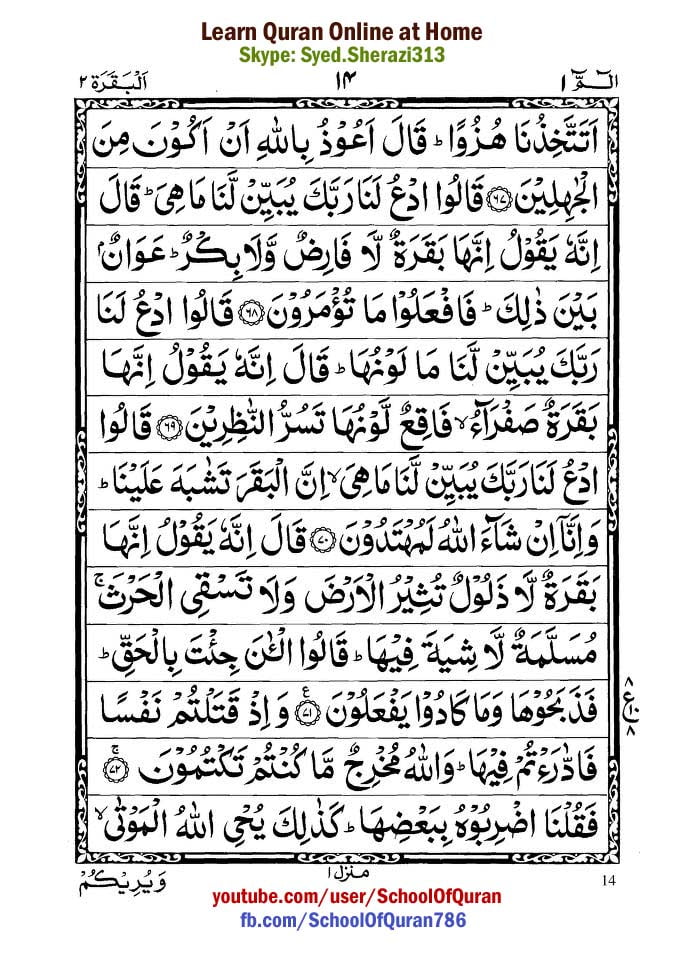 Learn Quran Online at Home
Skype: Syed.Sherazi313
الٓمّٓ ١ ١٤ اَلْبَقَرَة ٢
اَتَتَّخِذُنَا هُزُوًا ؕ قَالَ اَعُوْذُ بِاللّٰهِ اَنْ اَكُوْنَ مِنَ
الْجٰهِلِيْنَ ﴿٦٧﴾ قَالُوا ادْعُ لَنَا رَبَّكَ يُبَيِّنْ لَّنَا مَا هِىَ ؕ قَالَ
اِنَّهٗ يَقُوْلُ اِنَّهَا بَقَرَةٌ لَّا فَارِضٌ وَّلَا بِكْرٌ ؕ عَوَانٌۢ
بَيْنَ ذٰلِكَ ؕ فَافْعَلُوْا مَا تُؤْمَرُوْنَ ﴿٦٨﴾ قَالُوا ادْعُ لَنَا
رَبَّكَ يُبَيِّنْ لَّنَا مَا لَوْنُهَا ؕ قَالَ اِنَّهٗ يَقُوْلُ اِنَّهَا
بَقَرَةٌ صَفْرَآءُ ۙ فَاقِعٌ لَّوْنُهَا تَسُرُّ النّٰظِرِيْنَ ﴿٦٩﴾ قَالُوا
ادْعُ لَنَا رَبَّكَ يُبَيِّنْ لَّنَا مَا هِىَ ۙ اِنَّ الْبَقَرَ تَشٰبَهَ عَلَيْنَا ؕ
وَاِنَّاۤ اِنْ شَآءَ اللّٰهُ لَمُهْتَدُوْنَ ﴿٧٠﴾ قَالَ اِنَّهٗ يَقُوْلُ اِنَّهَا
بَقَرَةٌ لَّا ذَلُوْلٌ تُثِيْرُ الْاَرْضَ وَلَا تَسْقِى الْحَرْثَ ۚ
مُسَلَّمَةٌ لَّا شِيَةَ فِيْهَا ؕ قَالُوا الْـٰٔنَ جِئْتَ بِالْحَقِّ ؕ
فَذَبَحُوْهَا وَمَا كَادُوْا يَفْعَلُوْنَ ﴿٧١﴾ ع وَاِذْ قَتَلْتُمْ نَفْسًا
٨ ع ١٠ ٨
فَادّٰرَءْتُمْ فِيْهَا ؕ وَاللّٰهُ مُخْرِجٌ مَّا كُنْتُمْ تَكْتُمُوْنَ ۚ ﴿٧٢﴾
فَقُلْنَا اضْرِبُوْهُ بِبَعْضِهَا ؕ كَذٰلِكَ يُحْىِ اللّٰهُ الْمَوْتٰى ۙ
14 منزل ١ وَيُرِيْكُمْ
youtube.com/user/SchoolOfQuran
fb.com/SchoolOfQuran786